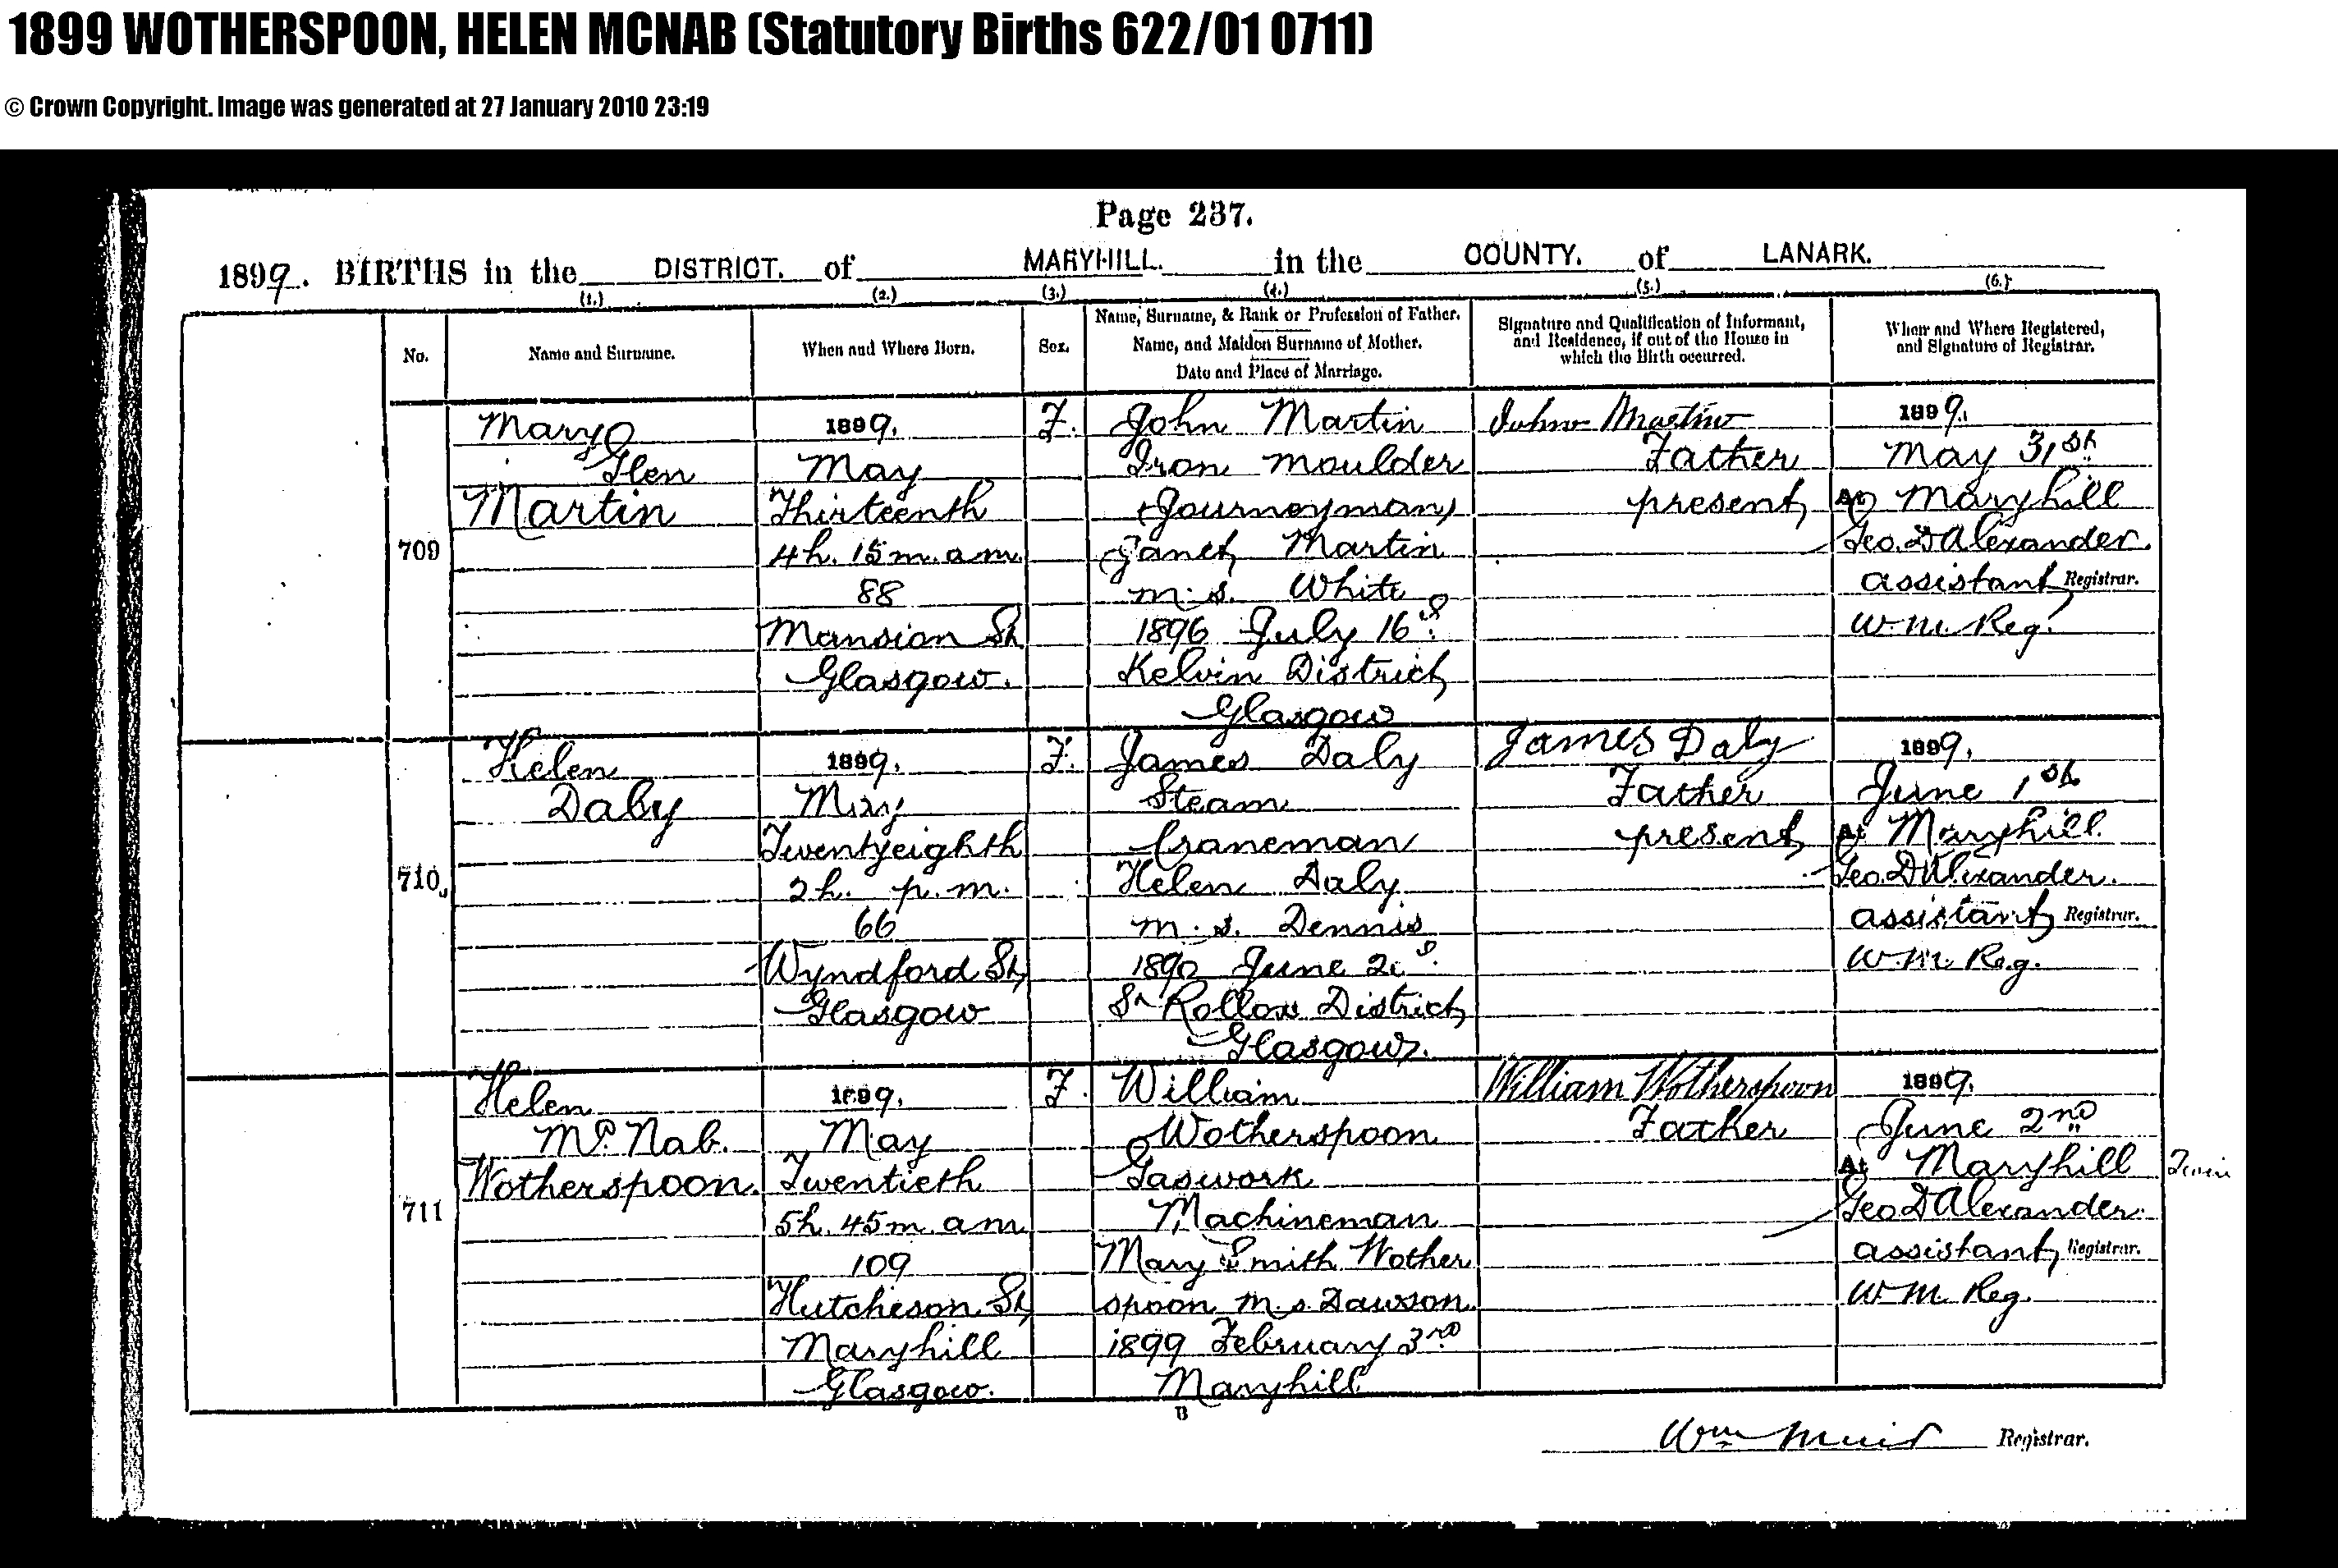 1899 WOTHERSPOON, HELEN MCNAB (Statutory Births 622/01 0711)
© Crown Copyright. Image was generated at 27 January 2010 23:19
Page 237.
1899. BIRTHS in the DISTRICT. of MARYHILL. in the COUNTY. of LANARK.
(1.) (2.) (3.) (4.) (5.) (6.)
No.
Name and Surname.
When and Where Born.
Sex.
Name, Surname, & Rank or Profession of Father.
Name, and Maiden Surname of Mother.
Date and Place of Marriage.
Signature and Qualification of Informant,
and Residence, if out of the House in
which the Birth occurred.
When and Where Registered,
and Signature of Registrar.
709
Mary
Glen
Martin
1899.
May
Thirteenth
4h. 15m. a.m.
88
Mansion St
Glasgow.
F.
John Martin
Iron Moulder
(Journeyman)
Janet Martin
m.s. White
1896 July 16th
Kelvin District
Glasgow
John Martin
Father
present
1899.
May 31st
At Maryhill
Geo. D Alexander.
assistant Registrar.
W.M. Reg.
710
Helen
Daly
1899.
May
Twentyeighth
2h. p.m.
66
Wyndford St
Glasgow
F.
James Daly
Steam
Craneman
Helen Daly
m.s. Dennis
1890 June
St Rollox District
Glasgow.
James Daly
Father
present
1899.
June 1st
At Maryhill.
Geo. D Alexander.
assistant Registrar.
W.M. Reg.
711
Helen
Mc.Nab.
Wotherspoon.
1899.
May
Twentieth
5h. 45m. a.m.
109
Hutcheson St
Maryhill
Glasgow.
F.
William
Wotherspoon
Gaswork
Machineman
Mary Smith Wother
spoon m.s. Dawson.
1899 February 3rd
Maryhill
William Wotherspoon
Father
1899.
June 2nd
At Maryhill
Geo D Alexander.
assistant Registrar.
W.M. Reg.
Twin
B
Wm Muir Registrar.